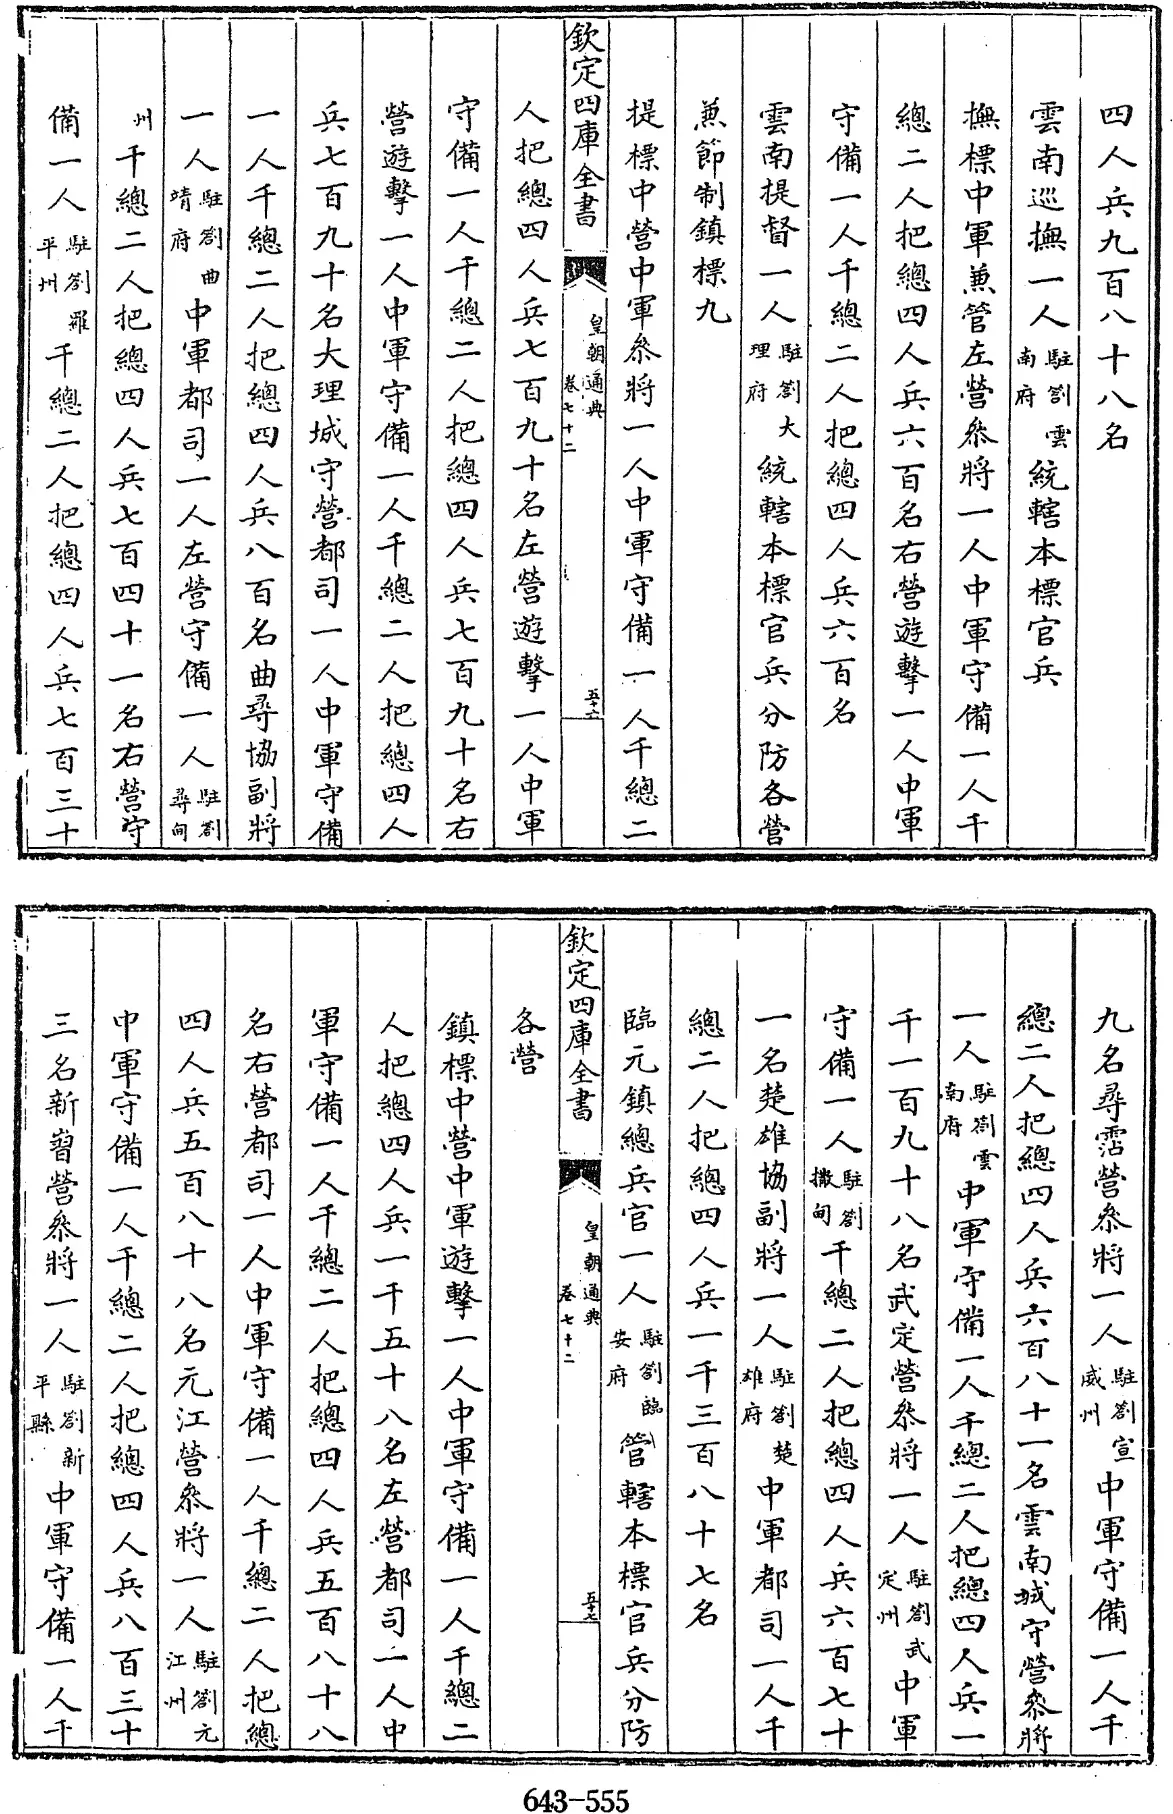 四人兵九百八十八名
雲南巡撫一人駐劄雲南府統轄本標官兵
撫標中軍兼管左營叅將一人中軍守備一人千
總二人把總四人兵六百名右營遊擊一人中軍
守備一人千總二人把總四人兵六百名
雲南提督一人駐劄大理府統轄本標官兵分防各營
兼節制鎮標九
提標中營中軍叅將一人中軍守備一人千總二
欽定四庫全書 皇朝通典 卷七十二 五十六
人把總四人兵七百九十名左營遊擊一人中軍
守備一人千總二人把總四人兵七百九十名右
營遊擊一人中軍守備一人千總二人把總四人
兵七百九十名大理城守營都司一人中軍守備
一人千總二人把總四人兵八百名曲尋協副將
一人駐劄曲靖府中軍都司一人左營守備一人駐劄尋甸
州千總二人把總四人兵七百四十一名右營守
備一人駐劄羅平州千總二人把總四人兵七百三十
九名尋霑營叅將一人駐劄宣威州中軍守備一人千
總二人把總四人兵六百八十一名雲南城守營叅將
一人駐劄雲南府中軍守備一人千總二人把總四人兵一
千一百九十八名武定營叅將一人駐劄武定州中軍
守備一人駐劄撒甸千總二人把總四人兵六百七十
一名楚雄協副將一人駐劄楚雄府中軍都司一人千
總二人把總四人兵一千三百八十七名
臨元鎮總兵官一人駐劄臨安府管轄本標官兵分防
欽定四庫全書 皇朝通典 卷七十二 五十七
各營
鎮標中營中軍遊擊一人中軍守備一人千總二
人把總四人兵一千五十八名左營都司一人中
軍守備一人千總二人把總四人兵五百八十八
名右營都司一人中軍守備一人千總二人把總
四人兵五百八十八名元江營叅將一人駐劄元江州
中軍守備一人千總二人把總四人兵八百三十
三名新嶍營叅將一人駐劄新平縣中軍守備一人千
643-555